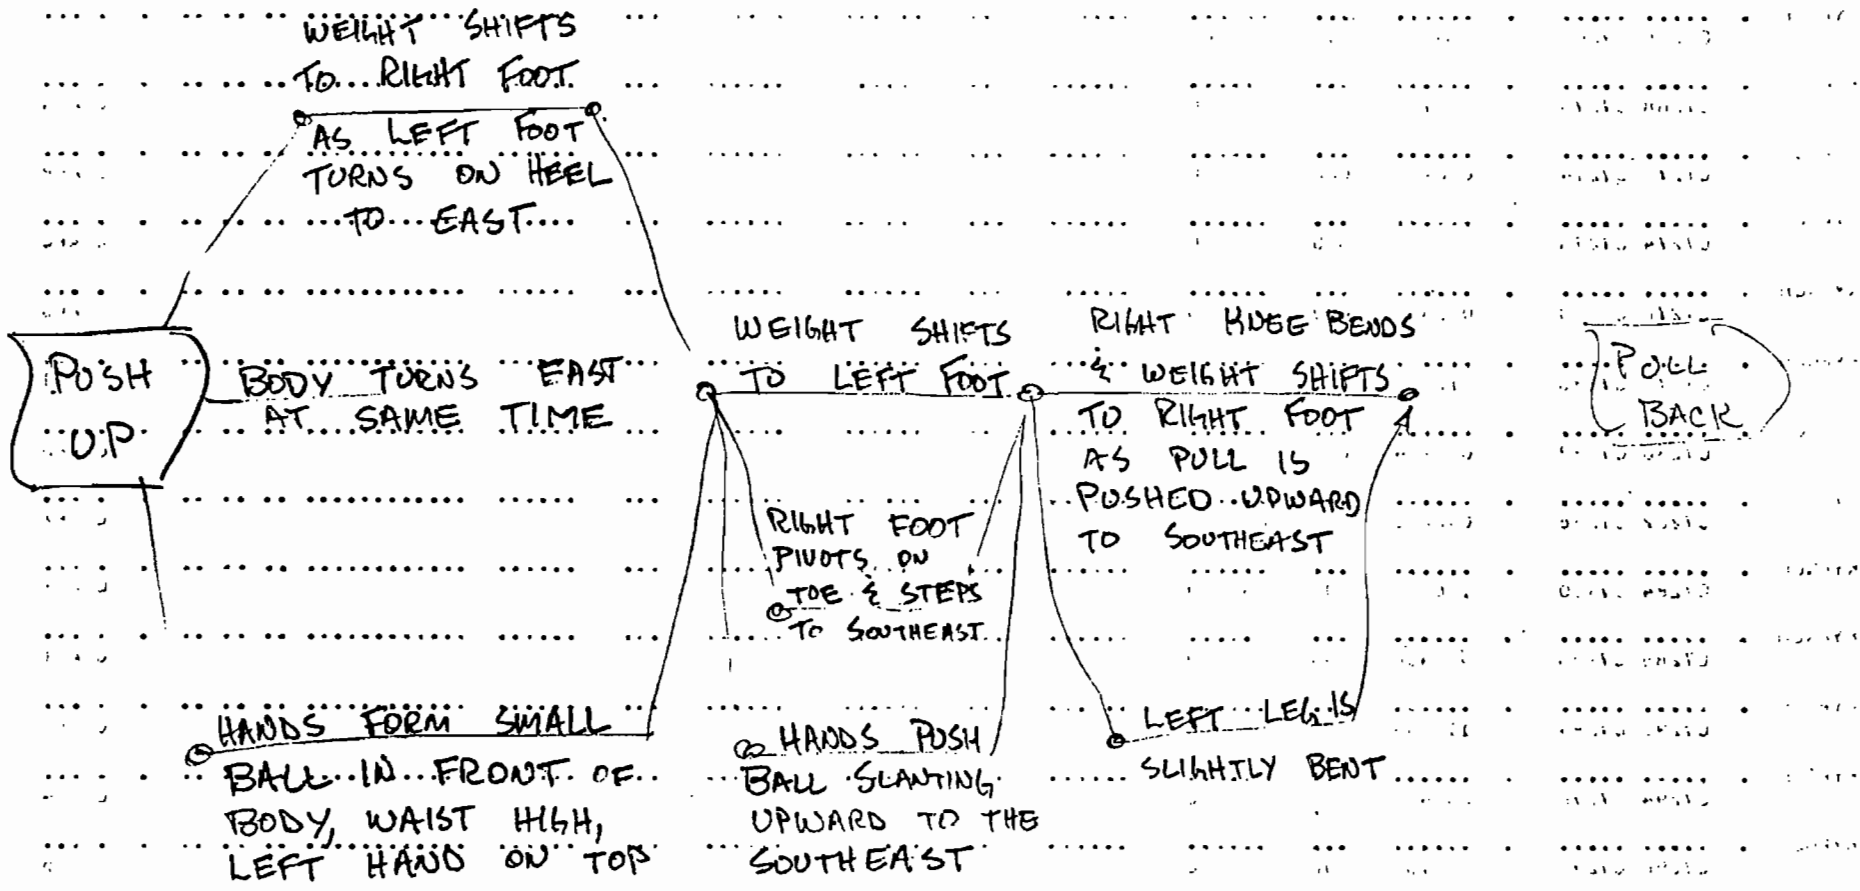 WEIGHT SHIFTS
TO RIGHT FOOT
AS LEFT FOOT
TURNS ON HEEL
TO EAST
PUSH
UP
BODY TURNS EAST
AT SAME TIME
HANDS FORM SMALL
BALL IN FRONT OF
BODY, WAIST HIGH,
LEFT HAND ON TOP
WEIGHT SHIFTS
TO LEFT FOOT
RIGHT FOOT
PIVOTS ON
TOE & STEPS
TO SOUTHEAST
HANDS PUSH
BALL SLANTING
UPWARD TO THE
SOUTHEAST
RIGHT KNEE BENDS
& WEIGHT SHIFTS
TO RIGHT FOOT
AS PULL IS
PUSHED UPWARD
TO SOUTHEAST
LEFT LEG IS
SLIGHTLY BENT
PULL
BACK